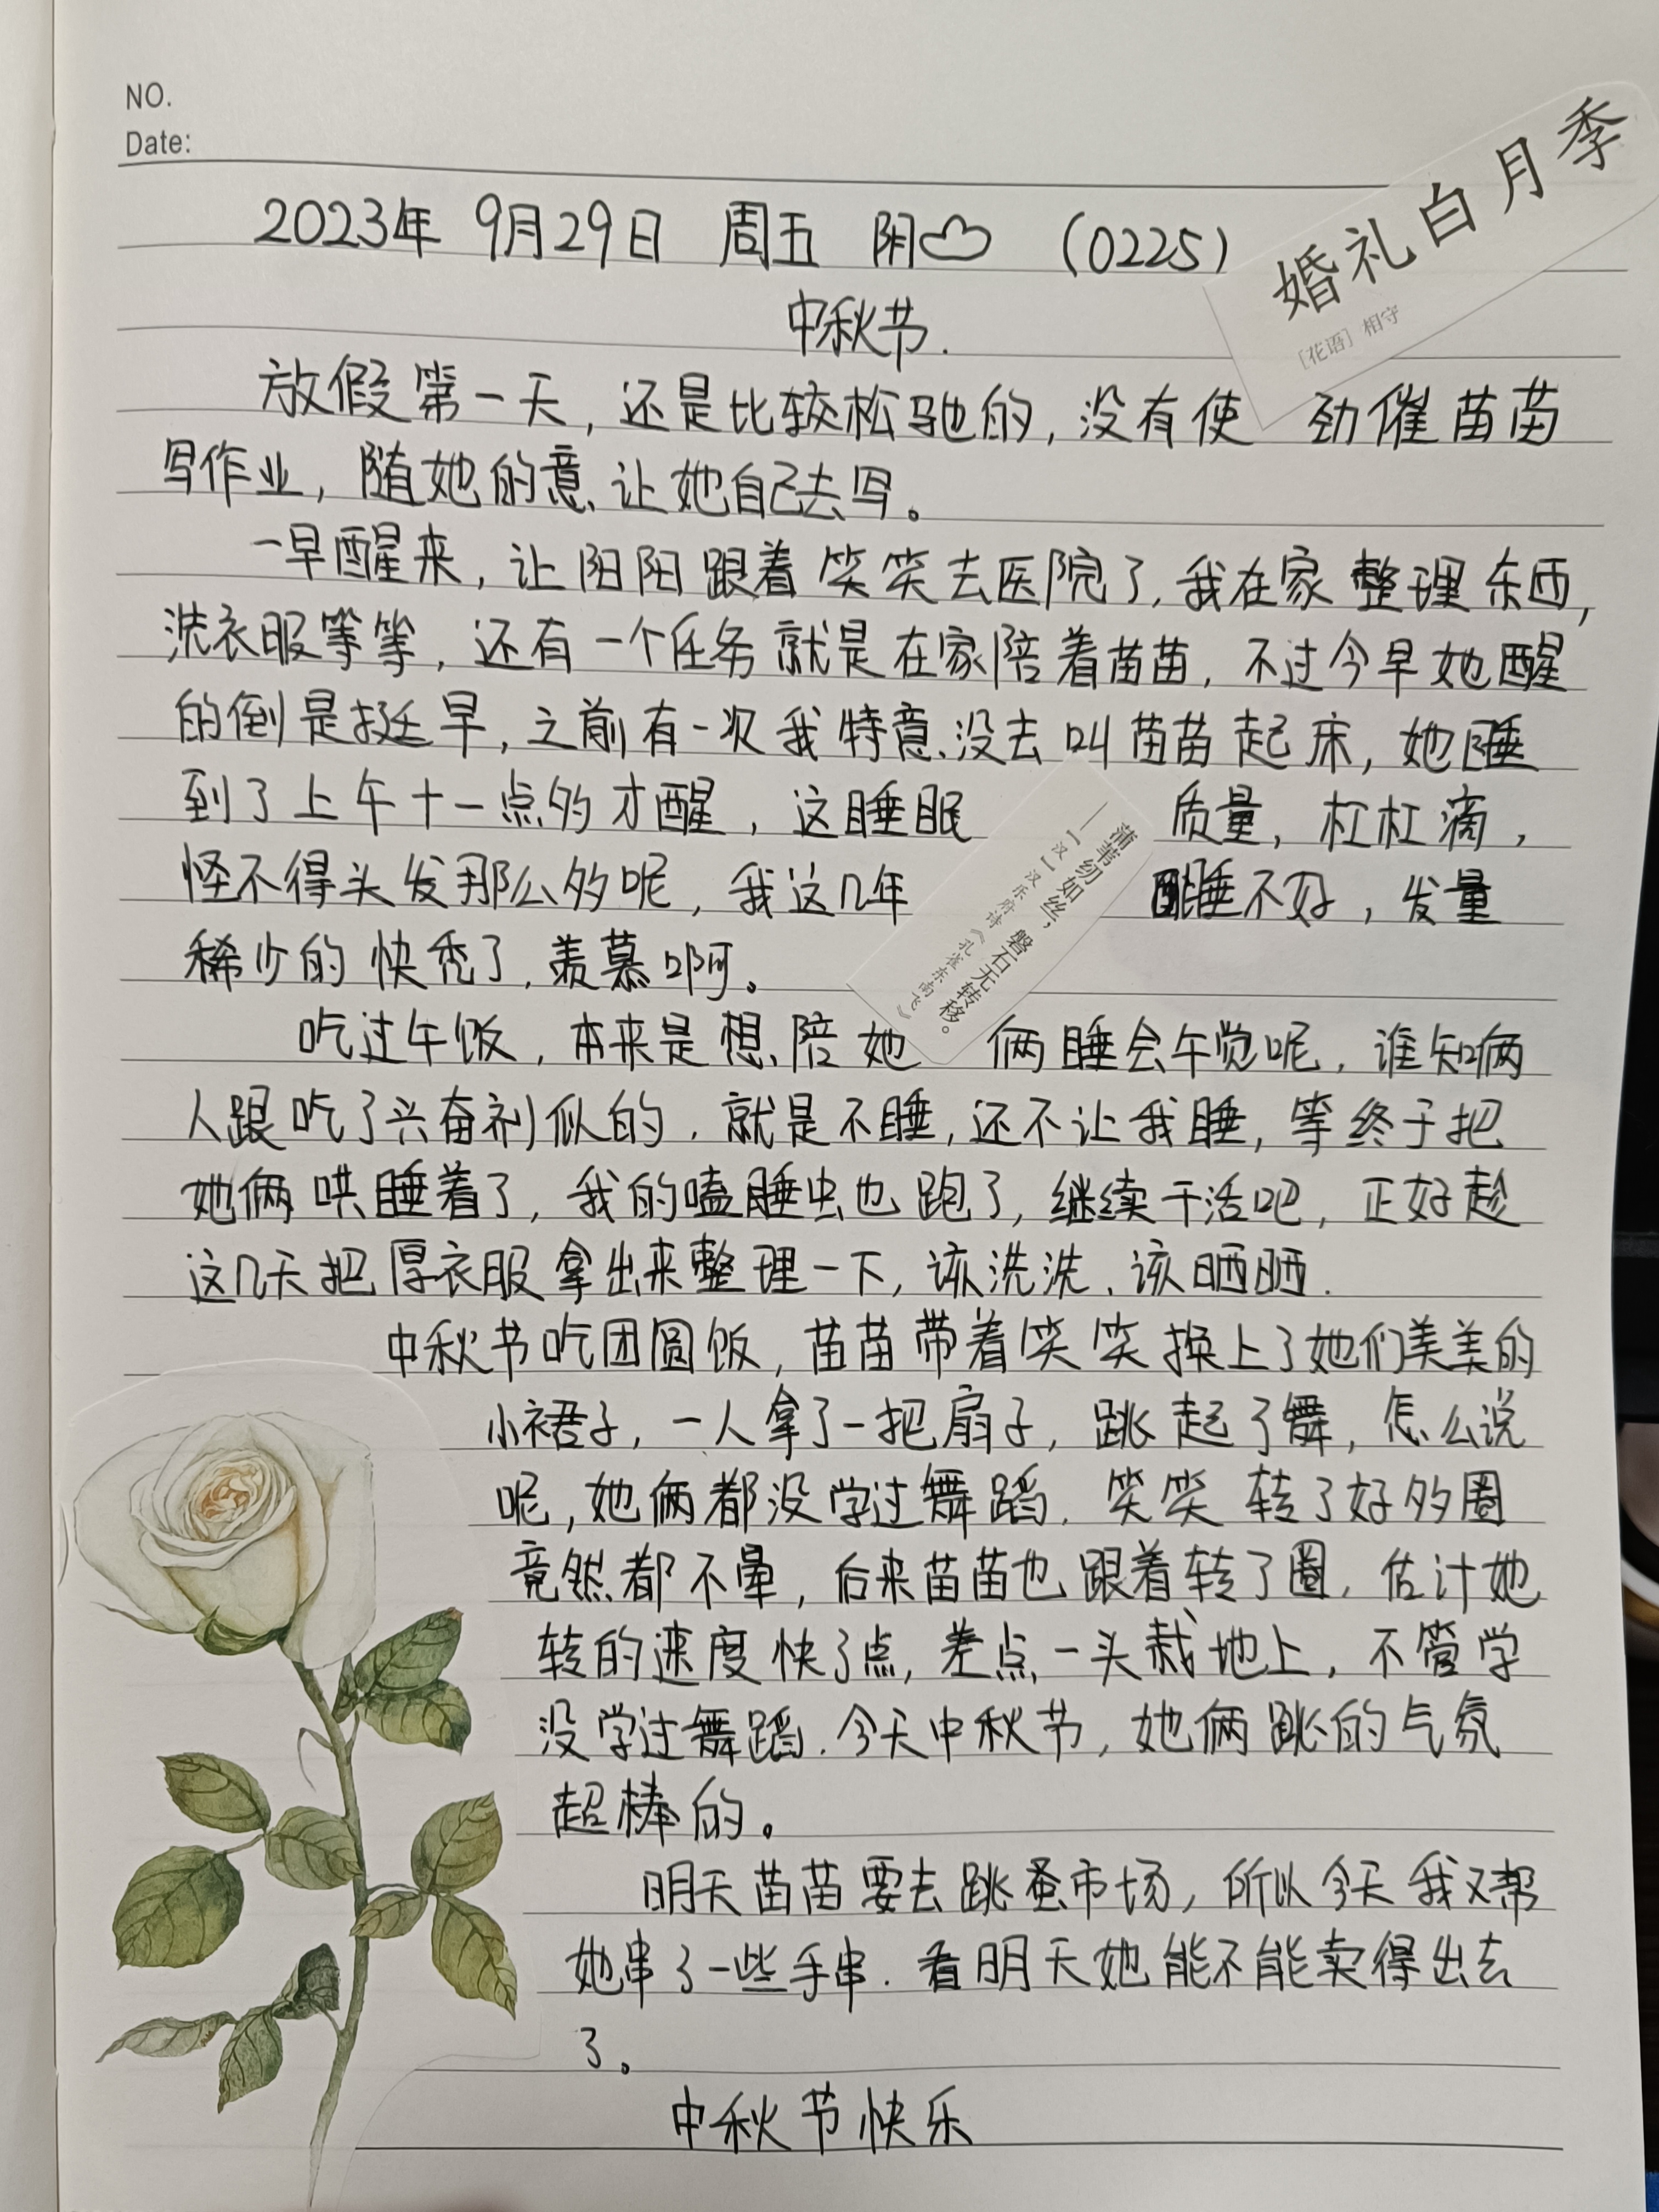 NO.
Date:
婚礼白月季
[花语] 相守
2023年 9月29日 周五 阴 (0225)
中秋节.
放假第一天,还是比较松驰的,没有使 劲催苗苗
写作业,随她的意、让她自己去写。
一早醒来,让阳阳跟着笑笑去医院了,我在家整理东西,
洗衣服等等,还有一个任务就是在家陪着苗苗,不过今早她醒
的倒是挺早,之前有一次我特意没去叫苗苗起床,她睡
到了上午十一点多才醒,这睡眠 质量,杠杠滴,
怪不得头发那么多呢,我这几年 睡不好,发量
稀少的快秃了,羡慕啊。
蒲苇纫如丝,磐石无转移。
—[汉]汉乐府诗《孔雀东南飞》
吃过午饭,本来是想陪她 俩睡会午觉呢,谁知俩
人跟吃了兴奋剂似的,就是不睡,还不让我睡,等终于把
她俩哄睡着了,我的嗑睡虫也跑了,继续干活吧,正好趁
这几天把厚衣服拿出来整理一下,该洗洗,该晒晒.
中秋节吃团圆饭,苗苗带着笑笑换上了她们美美的
小裙子,一人拿了一把扇子,跳起了舞,怎么说
呢,她俩都没学过舞蹈,笑笑转了好多圈
竟然都不晕,后来苗苗也跟着转了圈,估计她
转的速度快了点,差点一头栽地上,不管学
没学过舞蹈,今天中秋节,她俩跳的气氛
超棒的。
明天苗苗要去跳蚤市场,所以今天我又帮
她串了一些手串.看明天她能不能卖得出去
了。
中秋节快乐